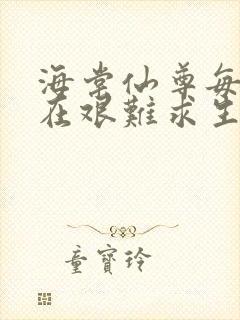 海棠仙尊每
在艰難求生
童寶玲